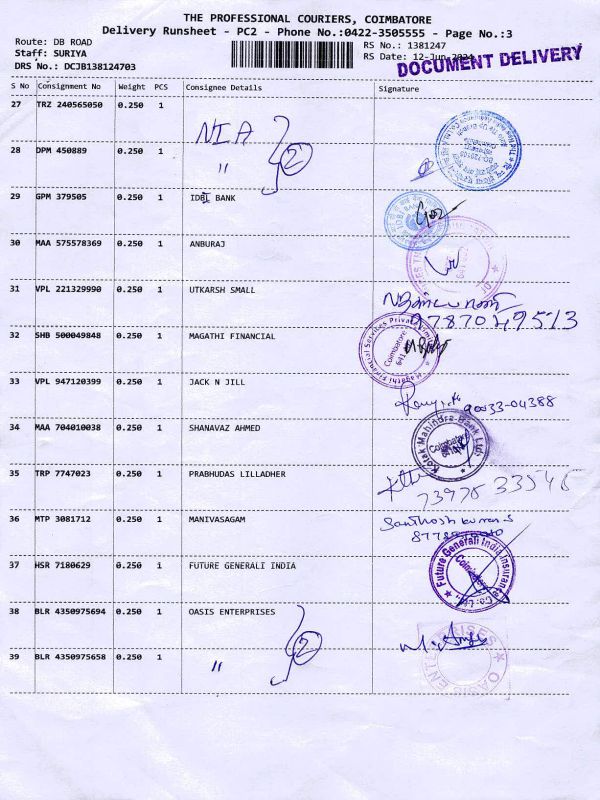 THE PROFESSIONAL COURIERS, COIMBATORE
Delivery Runsheet - PC2 - Phone No.:0422-3505555 - Page No.:3
Route: DB ROAD
RS No.: 1381247
Staff: SURIYA
RS Date: 12-Jun-2024
DRS No.: DCJB138124703
DOCUMENT DELIVERY
S No Consignment No Weight PCS Consignee Details Signature
27 TRZ 240565050 0.250 1 NIA
28 DPM 450889 0.250 1 " 2
29 GPM 379505 0.250 1 IDBI BANK
30 MAA 575578369 0.250 1 ANBURAJ
31 VPL 221329990 0.250 1 UTKARSH SMALL
32 SHB 500049848 0.250 1 MAGATHI FINANCIAL
Magathi Financial Services Private Limited
Coimbatore
33 VPL 947120399 0.250 1 JACK N JILL
90033-04388
34 MAA 704010038 0.250 1 SHANAVAZ AHMED
Kotak Mahindra Bank Ltd.
Coimbatore
35 TRP 7747023 0.250 1 PRABHUDAS LILLADHER
36 MTP 3081712 0.250 1 MANIVASAGAM
Santhosh kumar S
37 HSR 7180629 0.250 1 FUTURE GENERALI INDIA
Future Generali India Insurance Co. Ltd.
Coimbatore
38 BLR 4350975694 0.250 1 OASIS ENTERPRISES
39 BLR 4350975658 0.250 1 " 2
OASIS ENTERPRISES